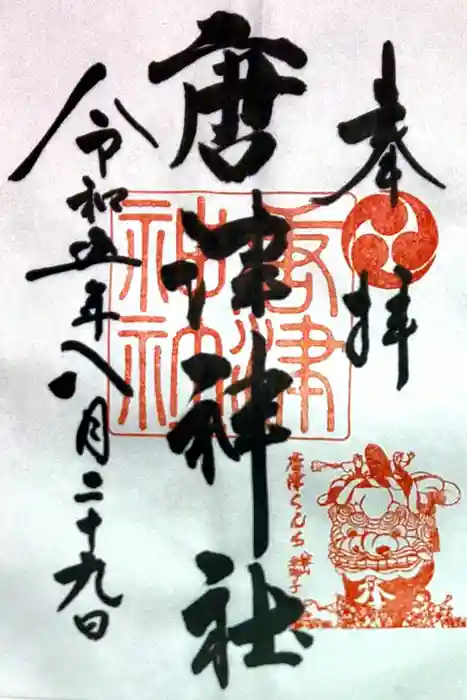 奉拝
唐津神社
令和五年八月二十九日
唐津神社
唐津くんち